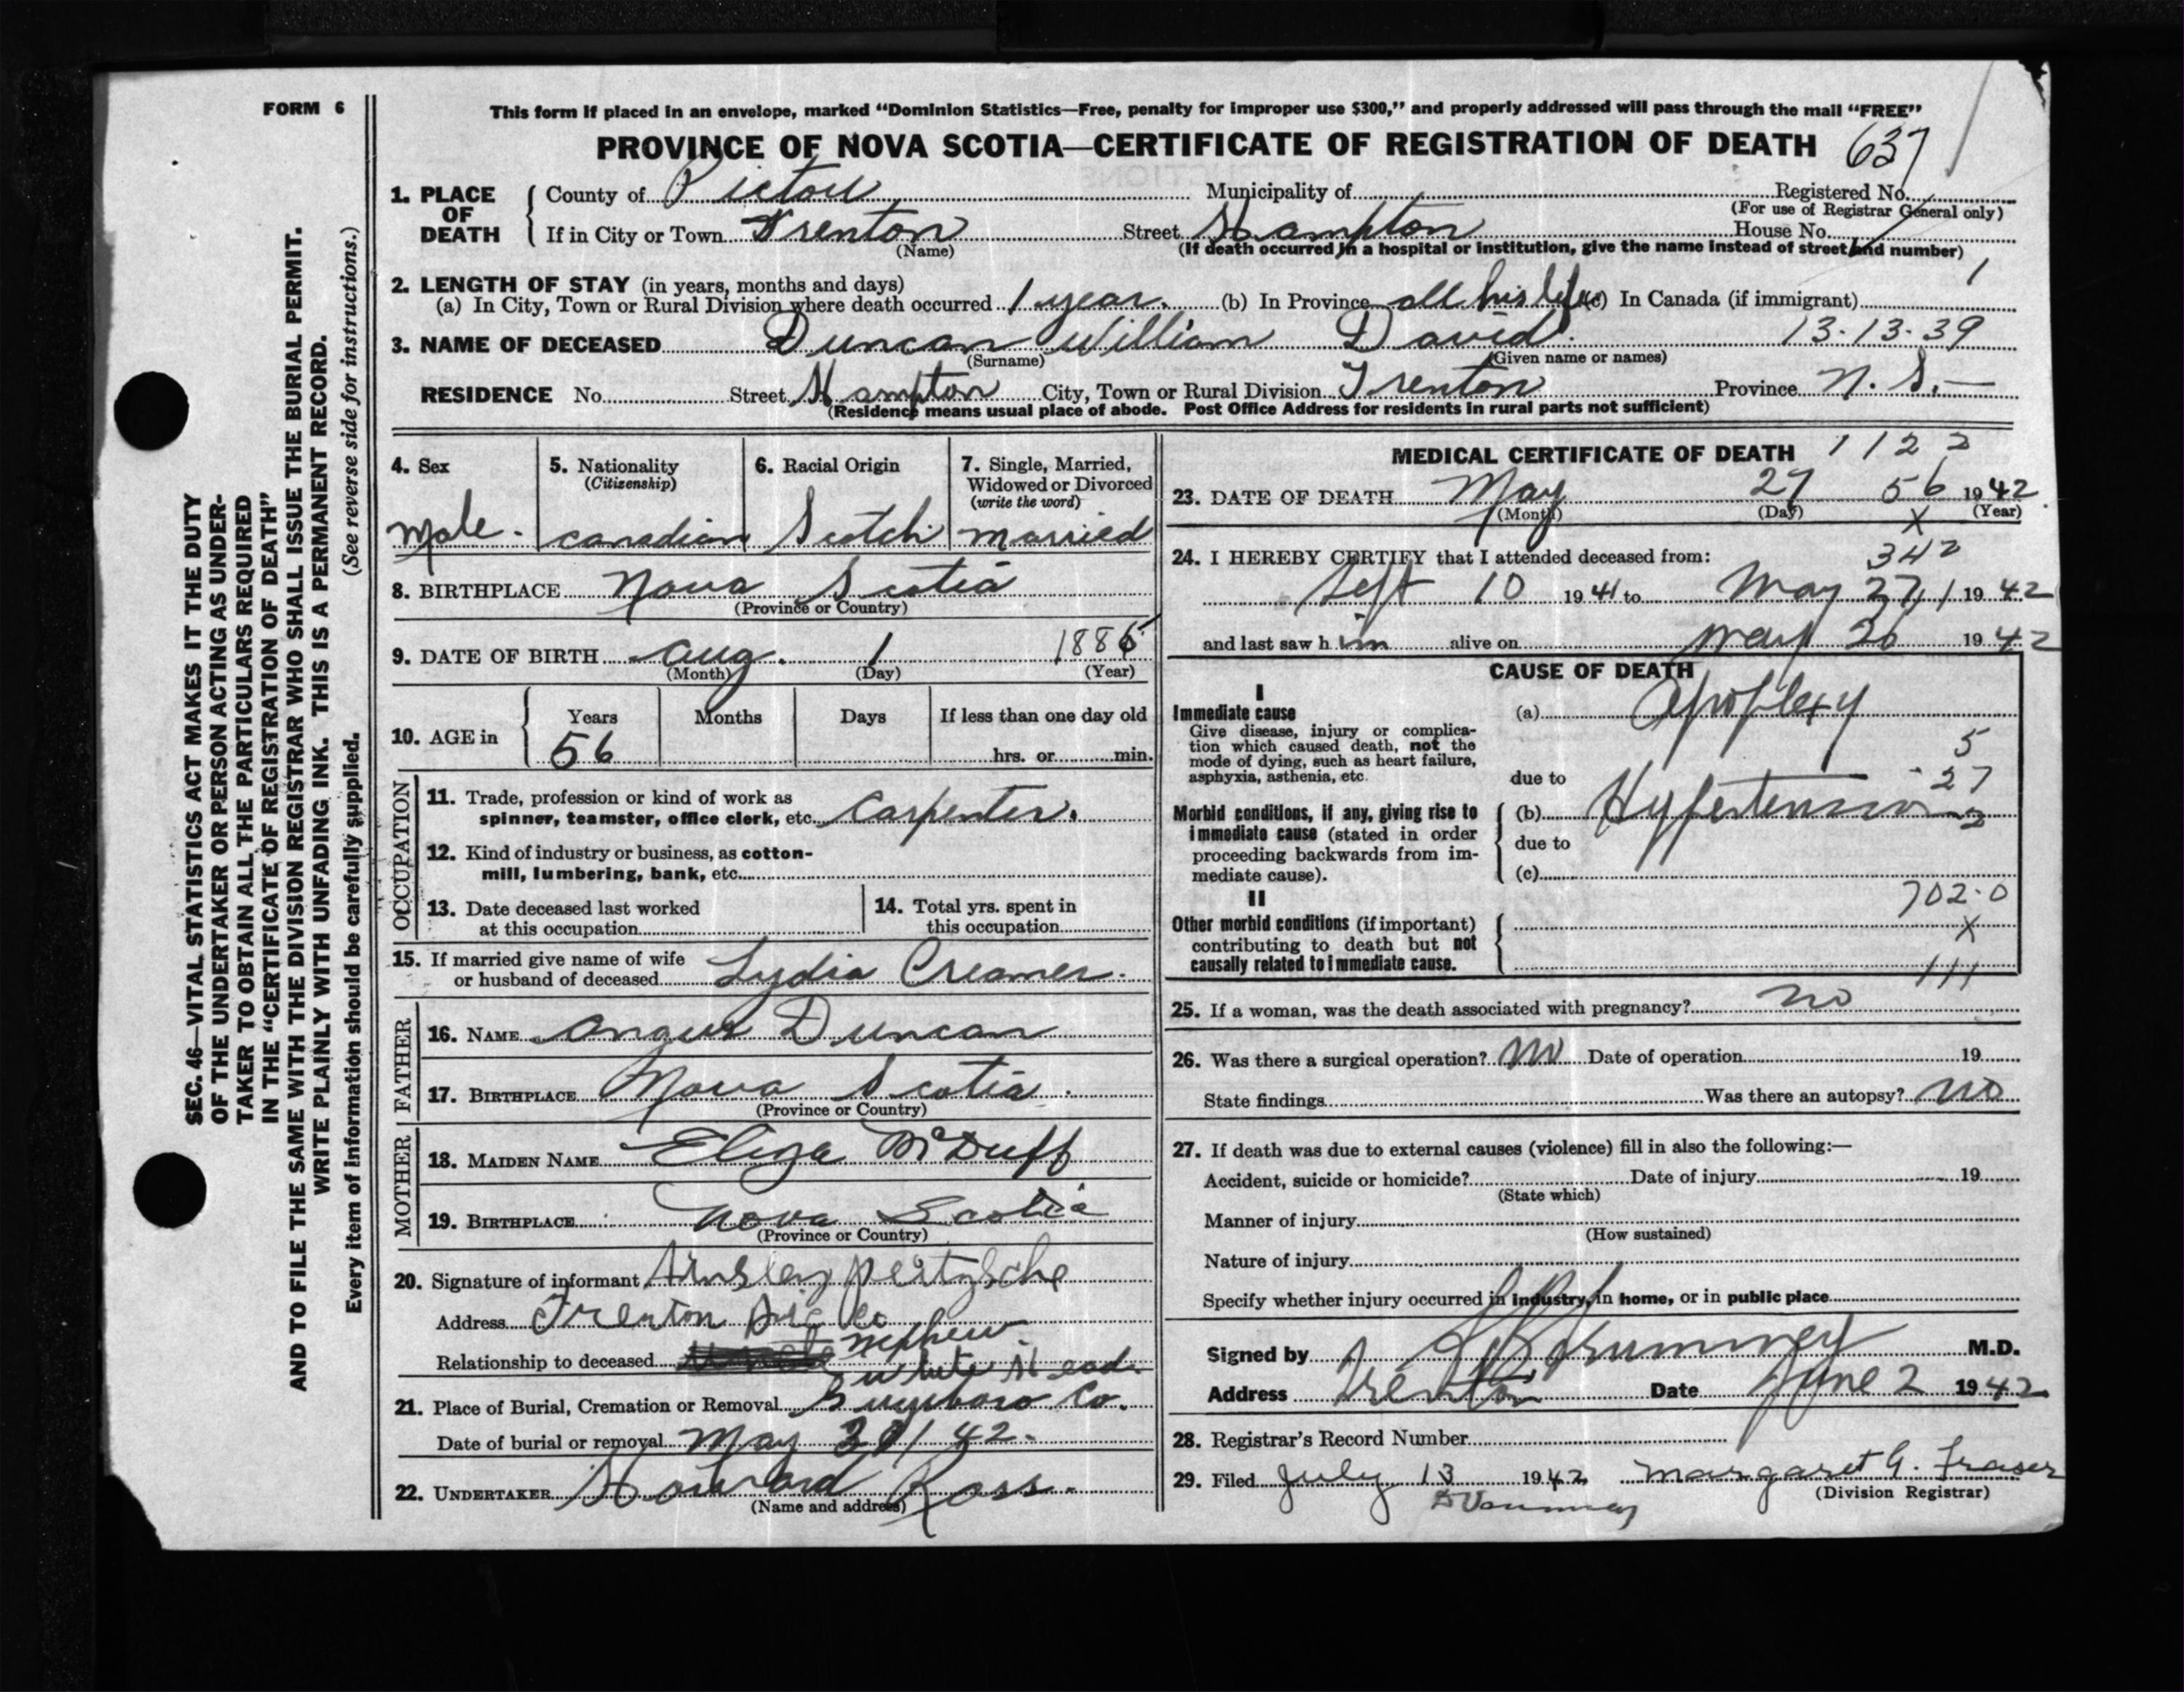 FORM 6
This form if placed in an envelope, marked “Dominion Statistics—Free, penalty for improper use $300,” and properly addressed will pass through the mail “FREE”
PROVINCE OF NOVA SCOTIA—CERTIFICATE OF REGISTRATION OF DEATH 637
1. PLACE OF DEATH County of Pictou Municipality of Registered No.
(For use of Registrar General only)
If in City or Town Trenton Street Hampton House No.
(Name) (If death occurred in a hospital or institution, give the name instead of street and number)
2. LENGTH OF STAY (in years, months and days) 1
(a) In City, Town or Rural Division where death occurred 1 year. (b) In Province all his life (c) In Canada (if immigrant)
3. NAME OF DECEASED Duncan William David. 13-13-39
(Surname) (Given name or names)
RESIDENCE No. Street Hampton City, Town or Rural Division Trenton Province N. S.—
(Residence means usual place of abode. Post Office Address for residents in rural parts not sufficient)
4. Sex
Male.
5. Nationality
(Citizenship)
Canadian
6. Racial Origin
Scotch
7. Single, Married,
Widowed or Divorced
(write the word)
married
8. BIRTHPLACE Nova Scotia
(Province or Country)
9. DATE OF BIRTH Aug. 1 188
(Month) (Day) (Year)
10. AGE in Years Months Days If less than one day old
56 hrs. or min.
OCCUPATION
11. Trade, profession or kind of work as
spinner, teamster, office clerk, etc. Carpenter.
12. Kind of industry or business, as cotton-
mill, lumbering, bank, etc.
13. Date deceased last worked
at this occupation
14. Total yrs. spent in
this occupation
15. If married give name of wife
or husband of deceased Lydia Creamer.
FATHER
16. NAME Angus Duncan
17. BIRTHPLACE Nova Scotia.
(Province or Country)
MOTHER
18. MAIDEN NAME Eliza McDuff
19. BIRTHPLACE Nova Scotia
(Province or Country)
20. Signature of informant
Address Trenton Pic Co
Relationship to deceased nephew.
White Head
21. Place of Burial, Cremation or Removal Guysboro Co.
Date of burial or removal May 42.
22. UNDERTAKER Howard Ross.
(Name and address)
MEDICAL CERTIFICATE OF DEATH 1122
23. DATE OF DEATH May 27 56 1942.
(Month) (Day) (Year)
X
24. I HEREBY CERTIFY that I attended deceased from: 342
Sept 10 1941 to May 27 1942
and last saw him alive on May 26 1942
CAUSE OF DEATH
I
Immediate cause (a) Apoplexy
Give disease, injury or complica-
tion which caused death, not the
mode of dying, such as heart failure,
asphyxia, asthenia, etc. due to
5
27
2
Morbid conditions, if any, giving rise to
immediate cause (stated in order
proceeding backwards from im-
mediate cause).
(b) Hypertension
due to
(c)
702.0
II
Other morbid conditions (if important)
contributing to death but not
causally related to immediate cause.
X
111
25. If a woman, was the death associated with pregnancy? no
26. Was there a surgical operation? no Date of operation 19
State findings Was there an autopsy? no
27. If death was due to external causes (violence) fill in also the following:—
Accident, suicide or homicide? Date of injury 19
(State which)
Manner of injury
(How sustained)
Nature of injury
Specify whether injury occurred in industry, in home, or in public place
Signed by M.D.
Address Trenton Date June 2 1942
28. Registrar's Record Number
29. Filed July 13 1942 Margaret G. Fraser
(Division Registrar)
SEC. 46—VITAL STATISTICS ACT MAKES IT THE DUTY
OF THE UNDERTAKER OR PERSON ACTING AS UNDER-
TAKER TO OBTAIN ALL THE PARTICULARS REQUIRED
IN THE “CERTIFICATE OF REGISTRATION OF DEATH”
AND TO FILE THE SAME WITH THE DIVISION REGISTRAR WHO SHALL ISSUE THE BURIAL PERMIT.
WRITE PLAINLY WITH UNFADING INK. THIS IS A PERMANENT RECORD.
(See reverse side for instructions.)
Every item of information should be carefully supplied.